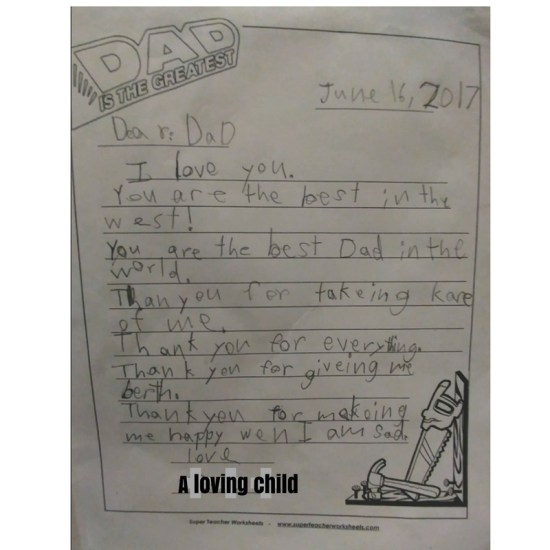 DAD
IS THE GREATEST
June 16, 2017
Dear: DaD
I love you.
You are the best in the
west!
You are the best Dad in the
world.
Than you for takeing kare
of me.
Thank you for everything.
Thank you for giveing me
berth.
Thank you for makeing
me happy wen I am sad.
love
A loving child
Super Teacher Worksheets - www.superteacherworksheets.com